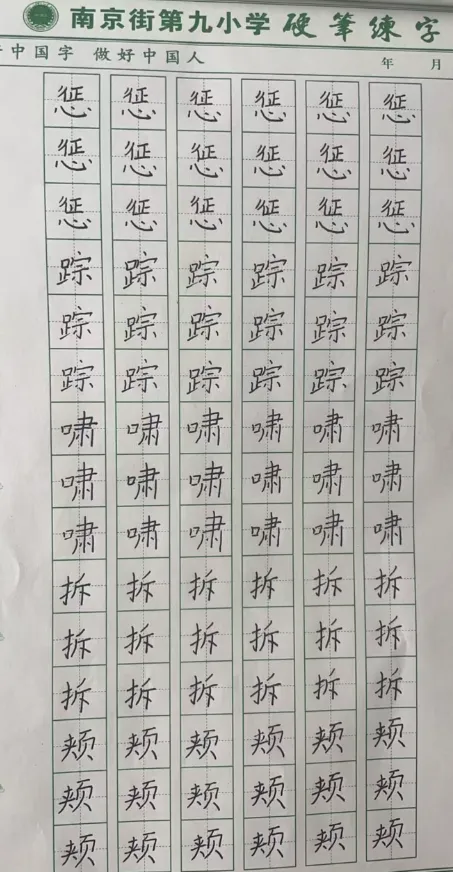 南京街第九小学 硬笔练字
中国字 做好中国人 年 月
惩 惩 惩 惩 惩 惩
惩 惩 惩 惩 惩 惩
惩 惩 惩 惩 惩 惩
踪 踪 踪 踪 踪 踪
踪 踪 踪 踪 踪 踪
踪 踪 踪 踪 踪 踪
啸 啸 啸 啸 啸 啸
啸 啸 啸 啸 啸 啸
啸 啸 啸 啸 啸 啸
拆 拆 拆 拆 拆 拆
拆 拆 拆 拆 拆 拆
拆 拆 拆 拆 拆 拆
颊 颊 颊 颊 颊 颊
颊 颊 颊 颊 颊 颊
颊 颊 颊 颊 颊 颊